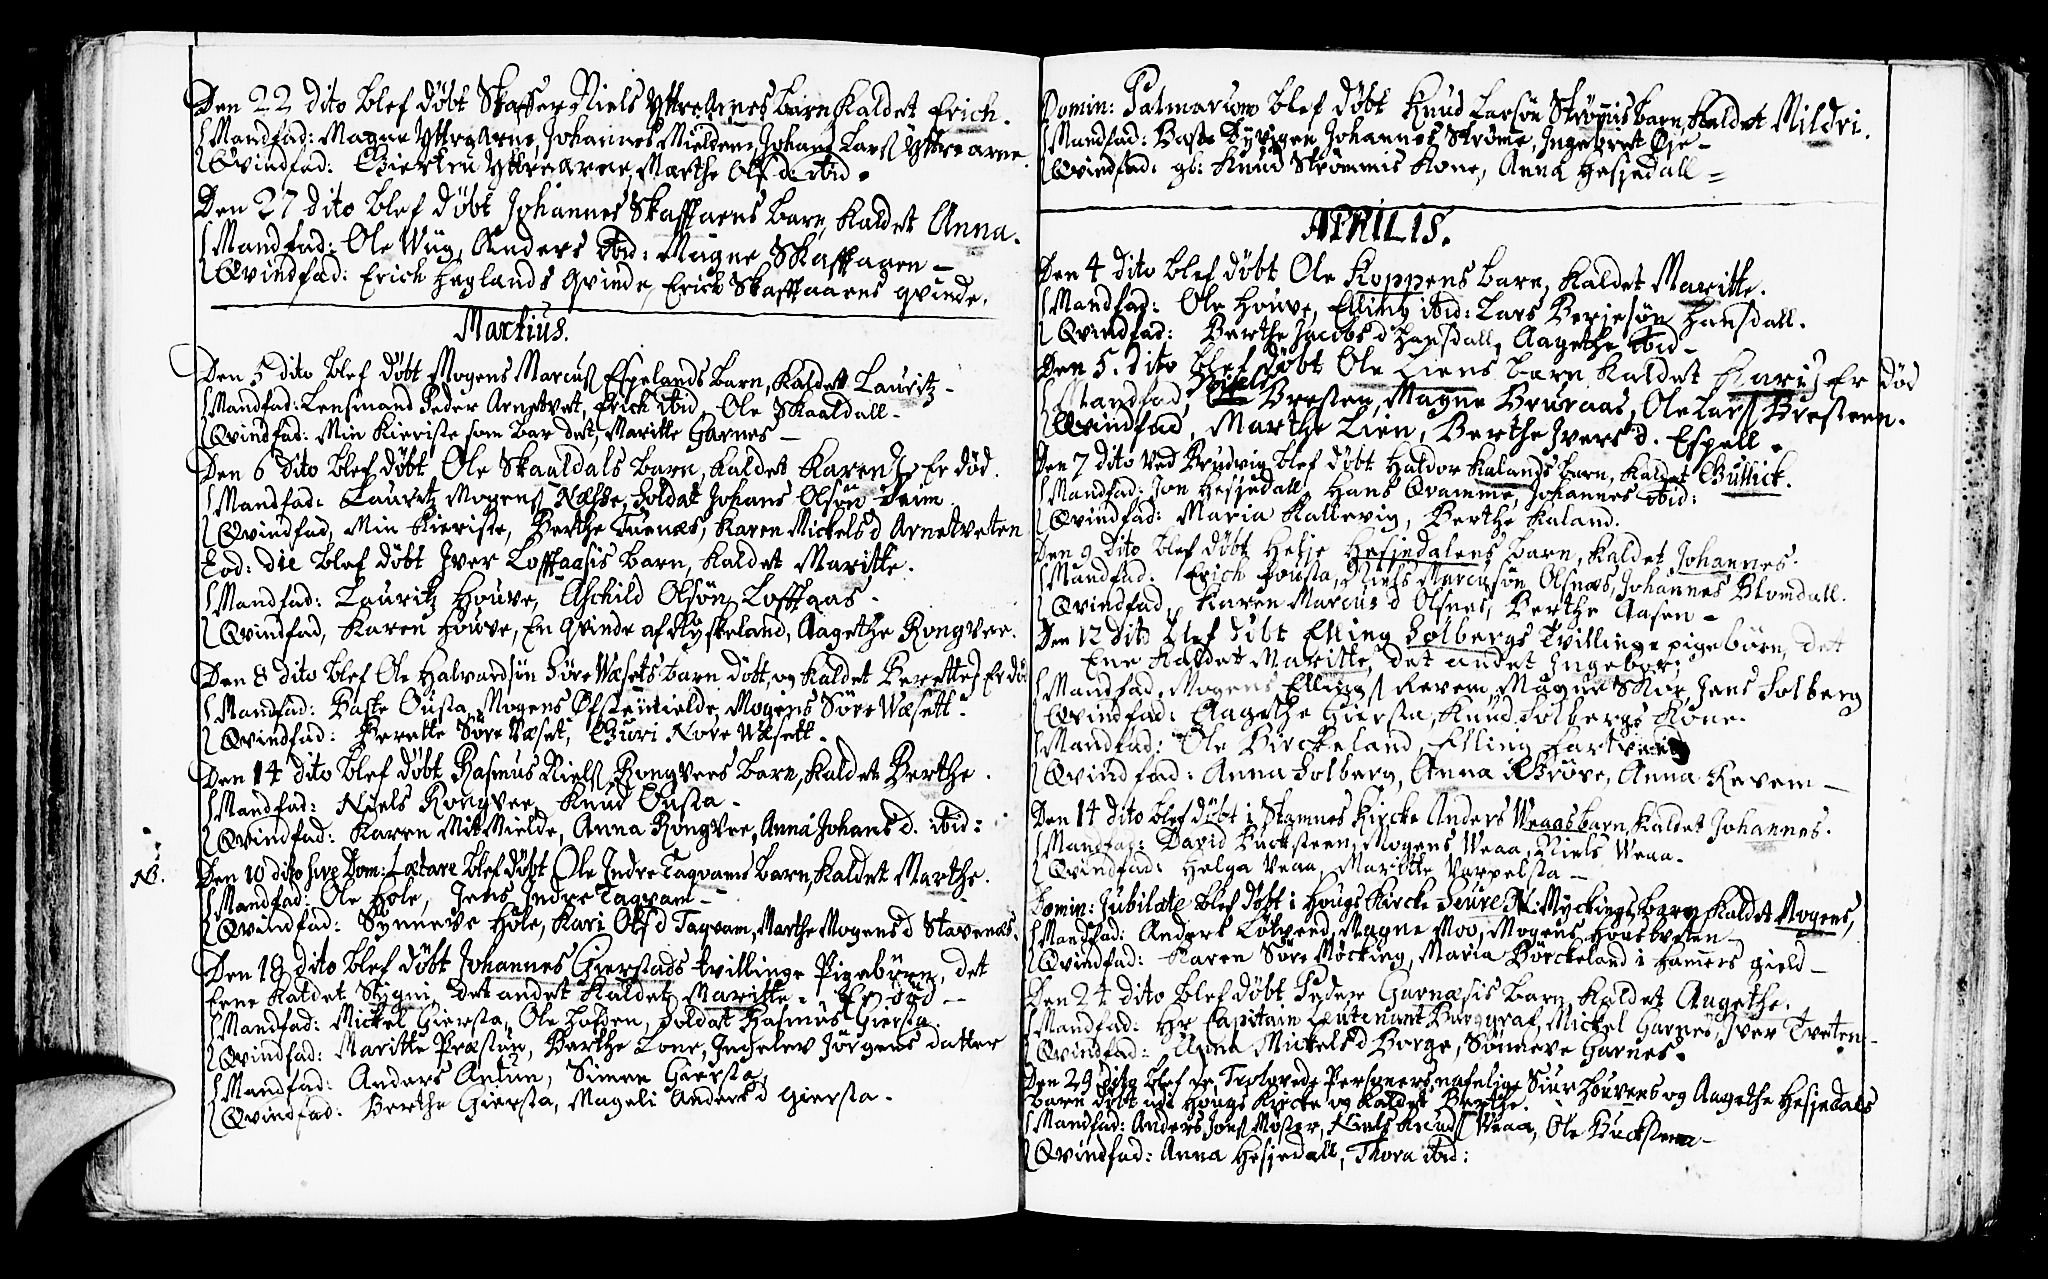 Den 22 dito blef döbt Skaffer Niels YttreArnes barn kaldet Erich.
Mandfad: Magne YttreArne, Johannes Mieldene, Johans Larsß Yttrearne.
Qvindfad: YttreArne, Marthe Olsd: ibid.
Den 27 dito blef döbt Johannes Skafftaens barn, kaldet Anna.
Mandfad: Ole Wiig, Anders ibid: Magne Skafftaaen
Qvindfad: Erich Heglands Qvinde, Erich Skafftaaens qvinde.
Martius.
Den 5 dito blef döbt Mogens Marcusß Espelands barn, kaldet Lauritz
Mandfad: Lensmand Peder Arnetvet, Erich ibid, Ole Skaaldall
Qvindfad: Min Kieriste som bar det, Maritte Garnes
Den 6 dito blef döbt Ole Skaaldals barn, kaldet Karen Er död.
Mandfad: Lauritz Mogensß Næsse, Soldat Johans Olsön Seim
Qvindfad, Min Kieriste, Berthe Tuenæs, Karen Mickelsd Arnetveten
Eod: die blef döbt Iver Lofftaasis barn, kaldet Maritte.
Mandfad: Lauritz Houve, Aschild Olsön Lofftaas.
Qvindfad, Karen Houve, En Qvinde af Flyskeland, Aagethe Rongvee.
Den 8 dito blef Ole Halvardsön Söre Wæsets barn döbt, og kaldet Berette Er död
Mandfad: Baste Ousta, Mogens Ostentielde, Mogens Söre Wæsett.
Qvindfad: Berette Söre Væset, Guri Nore Wæsett.
Den 14 dito blef döbt Rasmus Nielsß Rongvees barn, kaldet Berthe.
Mandfad: Niels Rongvee, Knud Ousta.
Qvindfad: Karen Mitmielde, Anna Rongvee, Anna Johansd. ibid:
NB. Den 10 dito sive Dom: Lætare blef döbt Ole Indre Tagvams barn, kaldet Marthe.
Mandfad: Ole Hole, Jens Indre Tagvam
Qvindfad: Synneve Hole, Kari Olsd Tagvam, Marthe Mogensd Stavenæs.
Den 18 dito blef döbt Johannes Gierstads tvillinge Pigebörn, det
Eene kaldet Signi, det andet kaldet Maritte. Er död
Mandfad: Mickel Giersta, Ole Holden, Soldat Rasmus Giersta
Qvindfad: Maritte Præstun, Berthe Lone, Ingelev Jörgens datter
Mandfad: Anders Antun, Simen Giersta,
Qvindfad: Berthe Giersta, Mageli Andersd Giersta.
Domin: Palmarum blef döbt Knud Larsön Strömis barn, kaldet Mildri.
Mandfad: Baste Johannes Ströme, Ingebret Öje
Qvindfad: gl: Knud Strömmis Kone, Anna Hesjedall
APRILIS.
Den 4 dito blef döbt Ole Koppens barn, kaldet Maritte.
Mandfad: Ole Houve, Elling ibid: Lars Berjesön Hansdall.
Qvindfad: Berthe Jacobsd Hansdall, Aagethe ibid
Den 5. dito blef döbt Ole Liens barn kaldet Kari Er död
Mandfad: Niels Bresten, Magne Bruraas, Ole Larsß Bresteen.
Qvindfad, Marthe Lien, Berthe Iversd. Espell.
Den 7 dito ved Brudvig blef döbt Haldor Kalands barn, kaldet Gullick.
Mandfad: Jon Hesjedall, Hans Qvamme, Johannes ibid:
Qvindfad: Maria Kallevig, Berthe Kaland.
Den 9 dito blef döbt Helje Hesjedalens barn, kaldet Johannes.
Mandfad: Erich Fousta, Niels Marcusön Olsnæs, Johannes Blomdall.
Qvindfad, Karen Marcusd Olsnes, Berthe Aasen
Den 12 dito blef döbt Elling Solbergs Tvillinge pigebörn, det
Ene kaldet Maritte, det andet Ingebor,
Mandfad, Mogens Ellingsß Revem, Magne Skie, Jens Solberg
Qvindfad: Aagethe Giersta, Knud Solbergs Kone.
Mandfad: Ole Birckeland, Elling Fartveed
Qvindfad: Anna Solberg, Anna i Gröve, Anna Revem
Den 14 dito blef döbt i Stamnes Kircke Anders Weaas barn, kaldet Johannes.
Mandfad: David Bucksteen, Mogens Weaa, Niels Weaa.
Qvindfad: Helga Veaa, Maritte Varpelsta
Domin: Jubilate blef döbt i Hougs Kircke Siure N: Myckings barn kaldet Mogens,
Mandfad: Anders Lötveed, Magne Moo, Mogens Houstveten
Qvindfad: Karen Söre Möcking, Maria Börckeland i Hamers gield
Den 24 dito blef döbt Peder Garnæsis barn, kaldet Aagethe.
Mandfad: Hr Capitain Leutenant Burggraf, Mickel Garnes, Iver Tveten
Qvindfad: Anna Mickelsd Borge, Sönneve Garnes.
Den 29 dito blef de Trolovede Personers, nafnlige Siur Houvens og Aagethe Hesjedals
barn döbt udi Hougs Kircke og kaldet Berthe.
Mandfad: Anders Jonsß Moster, Niels Knudsß Veaa, Ole Bucksteen
Qvindfad: Anna Hesjedall, Thora ibid: